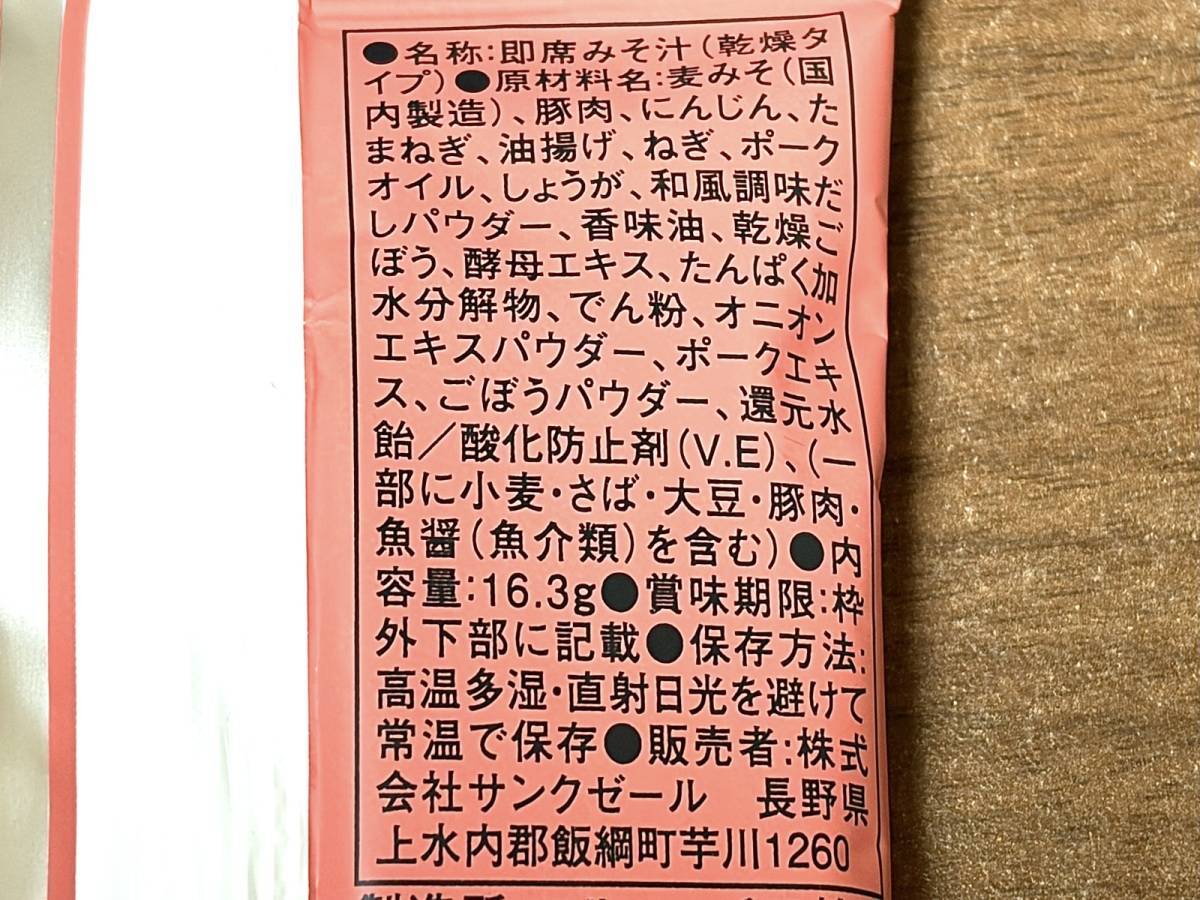 ●名称:即席みそ汁(乾燥タ
イプ)●原材料名:麦みそ(国
内製造)、豚肉、にんじん、た
まねぎ、油揚げ、ねぎ、ポーク
オイル、しょうが、和風調味だ
しパウダー、香味油、乾燥ご
ぼう、酵母エキス、たんぱく加
水分解物、でん粉、オニオン
エキスパウダー、ポークエキ
ス、ごぼうパウダー、還元水
飴/酸化防止剤(V.E)、(一
部に小麦・さば・大豆・豚肉・
魚醤(魚介類)を含む)●内
容量:16.3g●賞味期限:枠
外下部に記載●保存方法:
高温多湿・直射日光を避けて
常温で保存●販売者:株式
会社サンクゼール 長野県
上水内郡飯綱町芋川1260